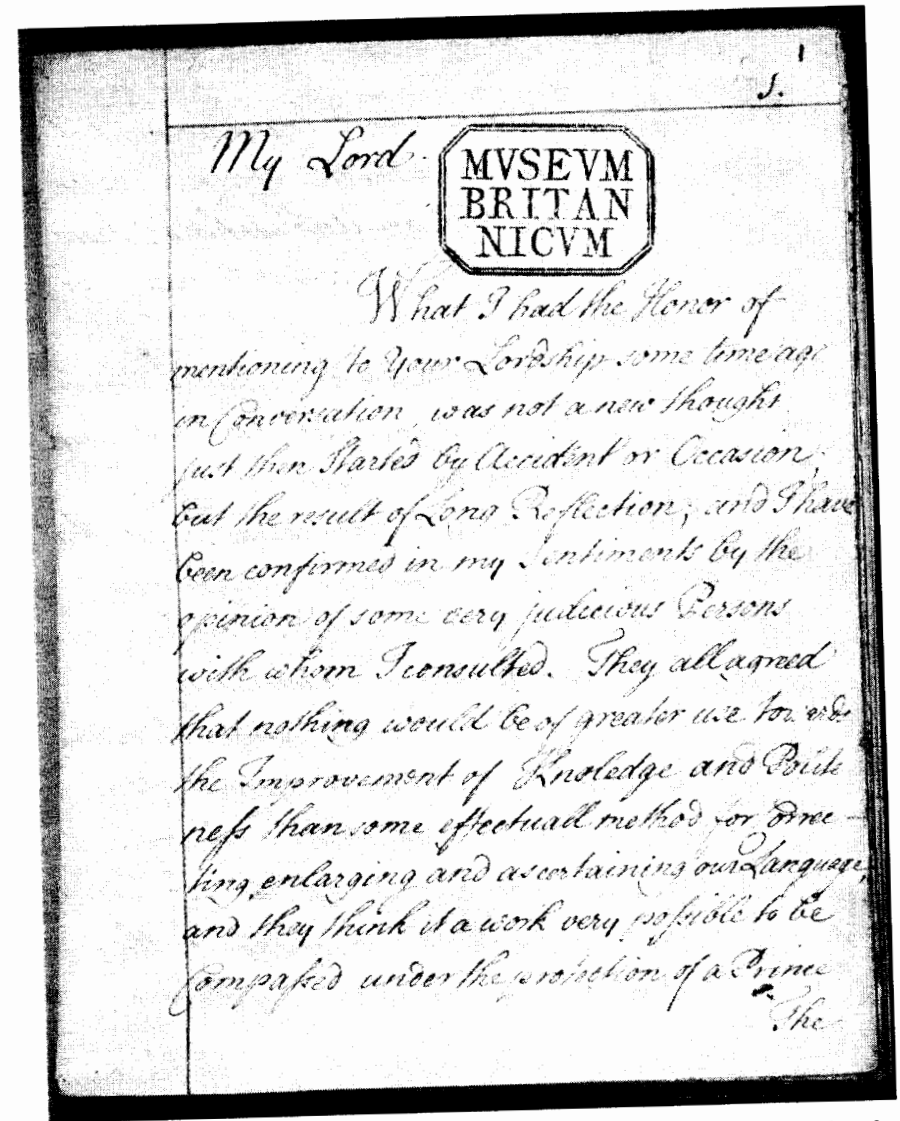 1
1.
My Lord.
MVSEVM
BRITAN
NICVM
What I had the Honor of
mentioning to Your Lordship some time ago
in Conversation, was not a new thought
just then Started by Accident or Occasion,
but the result of Long Reflection; and I have
been confirmed in my Sentiments by the
opinion of some very judicious Persons
with whom I consulted. They all agreed
that nothing would be of greater use towards
the Improvement of Knoledge and Polite
ness than some effectuall method for correc-
ting, enlarging and ascertaining our Language,
and they think it a work very possible to be
Compassed under the protection of a Prince
The